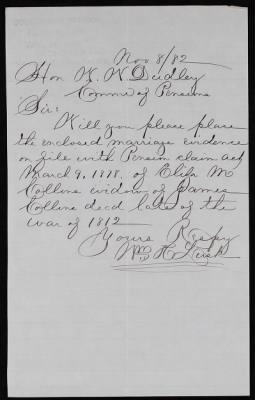 Nov 8/82
Hon W. W. Dudley
Commr of Pensions
Sir:
Will you please place
the enclosed marriage evidence
on file with Pension claim act
March 9, 1878. of Eliza M
Collins widow of James
Collins decd late of the
war of 1812
Yours Respy
Wm H.